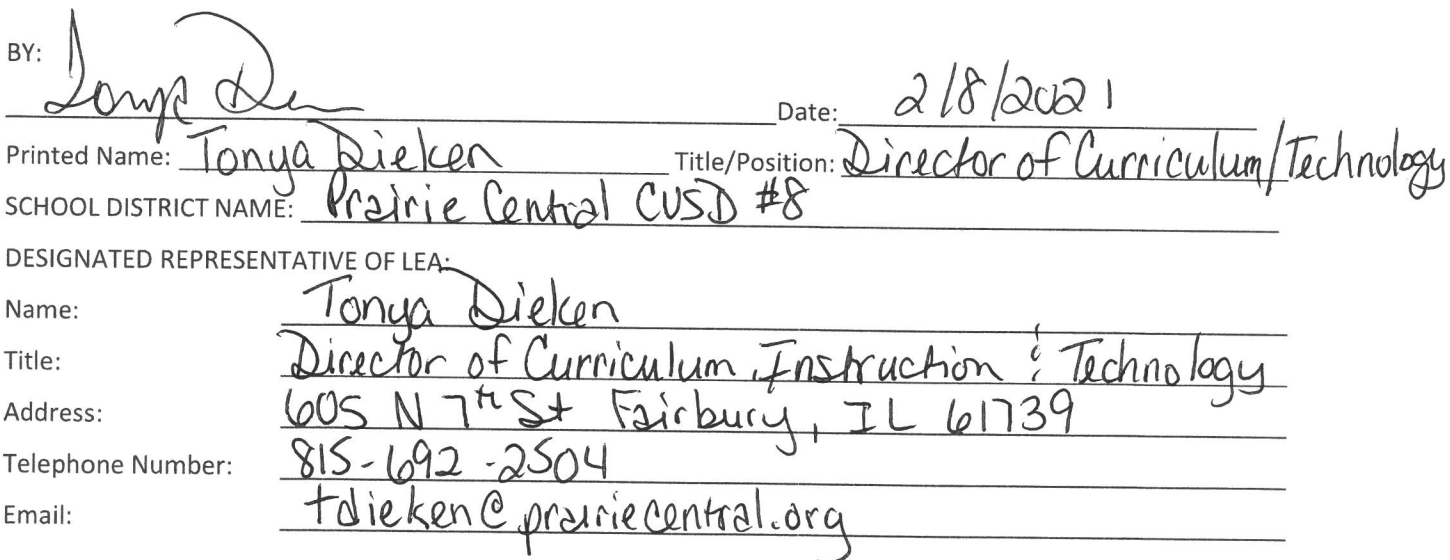 BY: Tonya D
Date: 2/8/2021
Printed Name: Tonya Dieken Title/Position: Director of Curriculum/Technology
SCHOOL DISTRICT NAME: Prairie Central CUSD #8
DESIGNATED REPRESENTATIVE OF LEA:
Name: Tonya Dieken
Title: Director of Curriculum, Instruction & Technology
Address: 605 N 7th St Fairbury, IL 61739
Telephone Number: 815-692-2504
Email: tdieken@prairiecentral.org